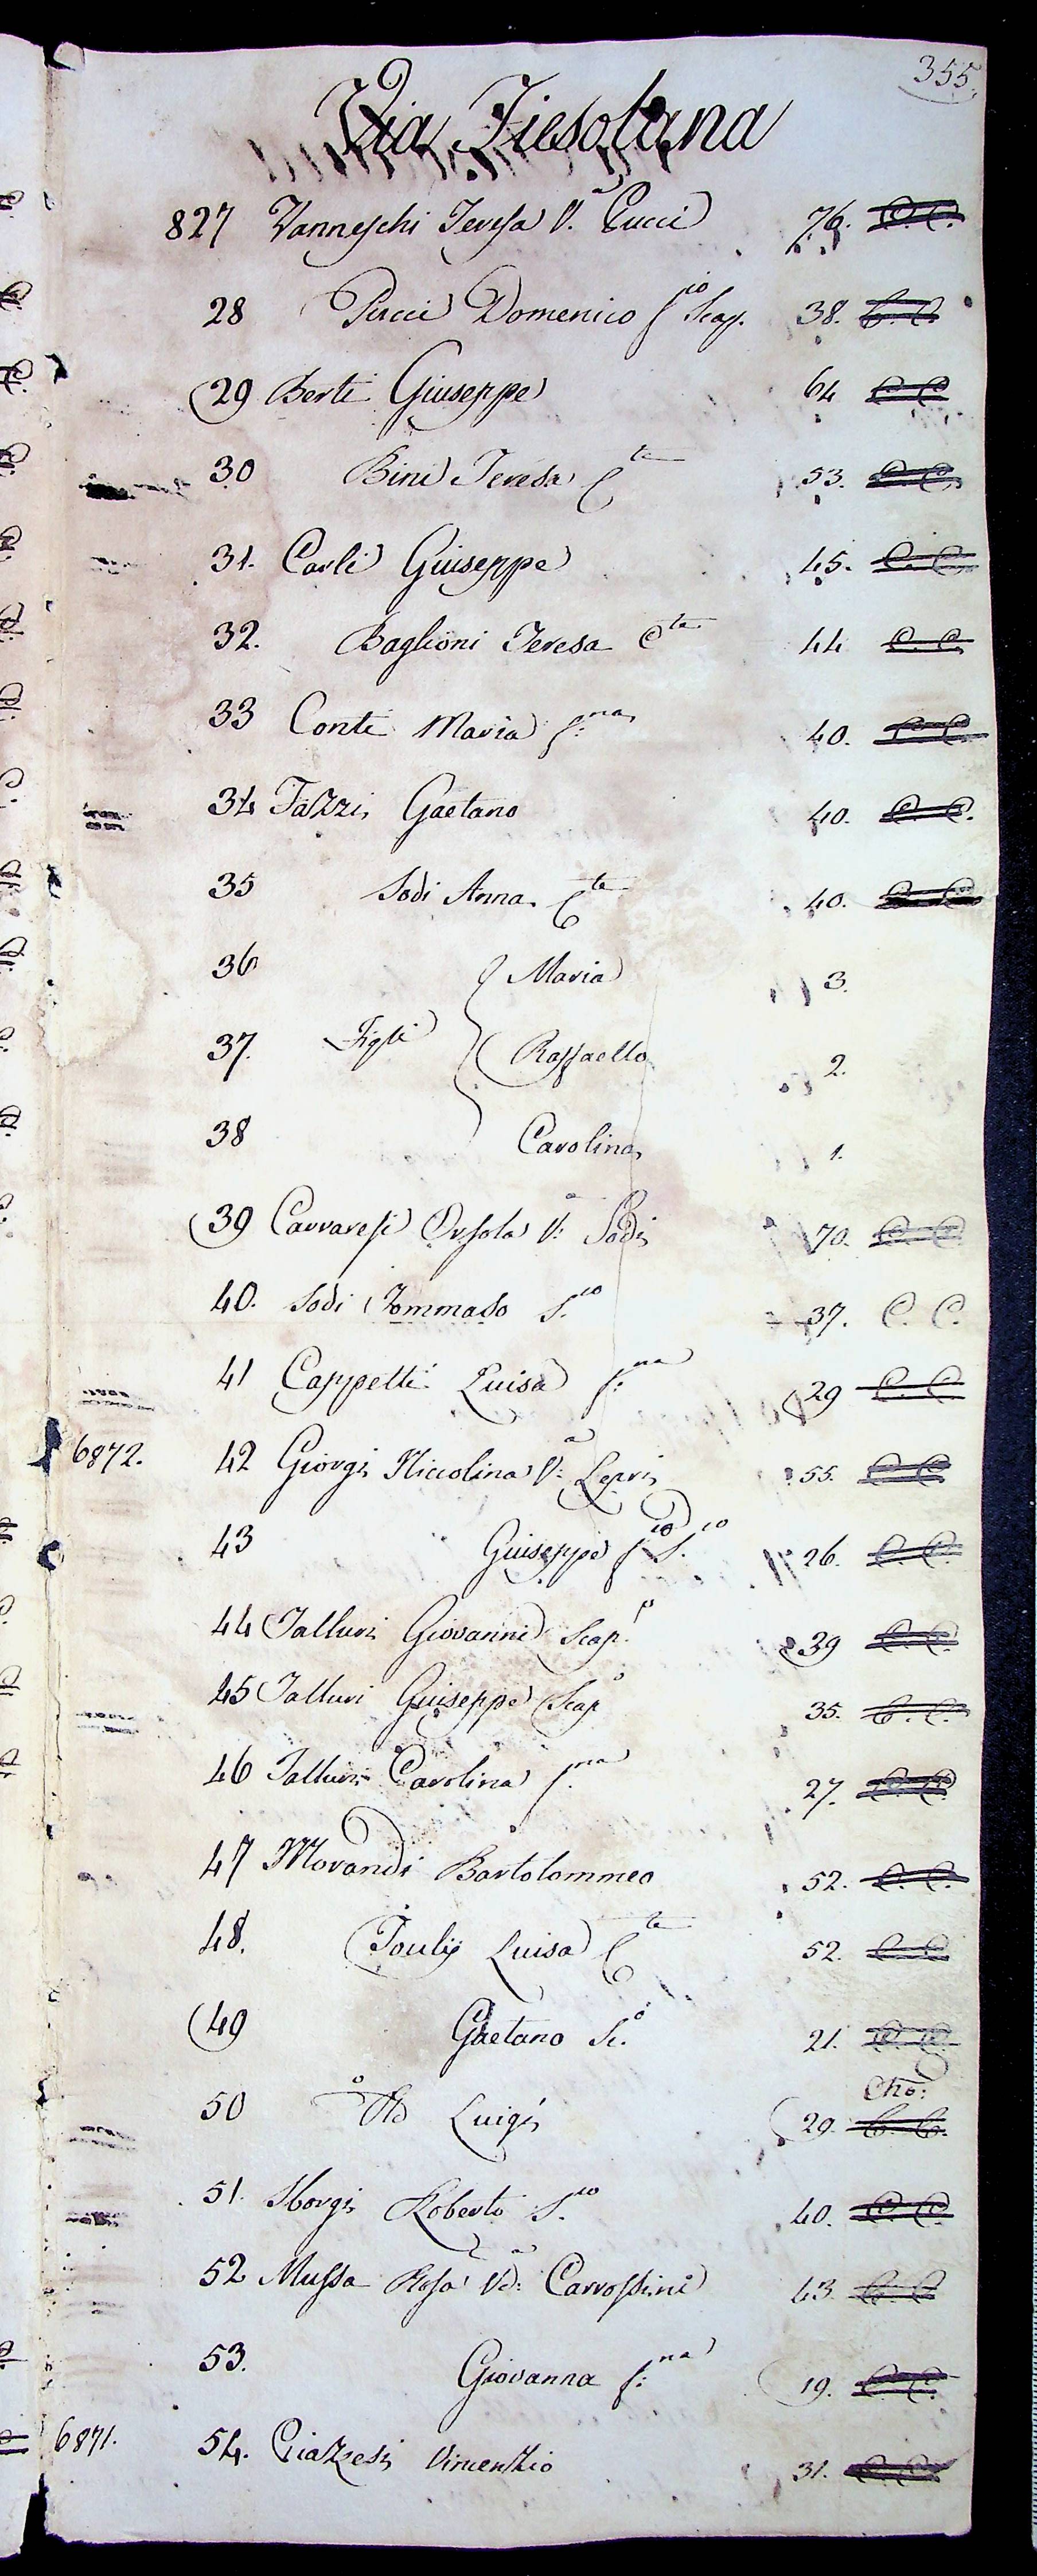 355.
Via Fiesolana
827 Vanneschi Teresa V.ª Pucci 76. C. C.
28 Pucci Domenico f.io Scap. 38. C. C.
29 Berti Giuseppe 64 C. C.
30 Bini Teresa C.te 53. C. C.
31. Carli Giuseppe 45. C. C.
32. Baglioni Teresa C.te 44 C. C.
33 Conti Maria f.na 40. C. C.
34 Fazzi Gaetano 40. C. C.
35 Sodi Anna C.te 40. C. C.
36 Maria 3.
37. Figli Raffaello 2.
38 Carolina 1.
39 Carraresi Orsola V.ª Sodi 70. C. C.
40. Sodi Tommaso S.io 37. C. C.
41 Cappelli Luisa f.na 29 C. C.
6872. 42 Giorgi Niccolina V.ª Lepri 55. C. C.
43 Giuseppe f.io S.io 26. C. C.
44 Talluri Giovanni Scap.o 39 C. C.
45 Talluri Giuseppe Scap.o 35. C. C.
46 Talluri Carolina f.na 27. C. C.
47 Morandi Bartolommeo 52. C. C.
48. Luisa C.te 52. C. C.
49 Gaetano Sc.o 21. C. C.
50 Luigi 29. C. C.
51. Sborgi Roberto S.io 40. C. C.
52 Mussa Rosa Vd.ª Carrossini 43. C. C.
53. Giovanna f.na 19. C. C.
6871. 54. Piazzesi Vincenzio 31. C. C.